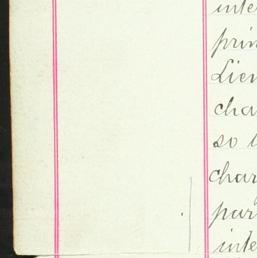 inte
prin
Lien
cha
so l
char
par
inte